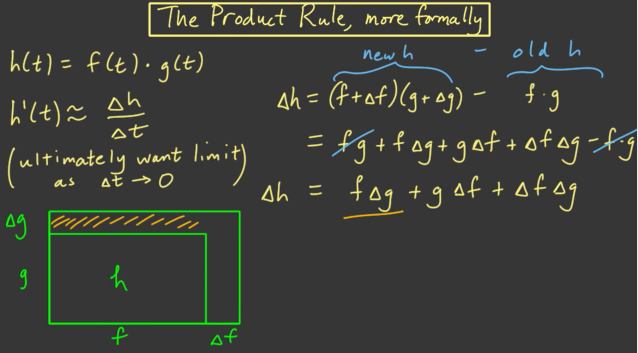 The Product Rule, more formally
h(t) = f(t) · g(t)
h'(t) ≈ Δh/Δt
(ultimately want limit)
as Δt → 0
new h - old h
Δh = (f+Δf)(g+Δg) - f·g
= fg + fΔg + gΔf + ΔfΔg - f·g
Δh = fΔg + gΔf + ΔfΔg
Δg
g
h
f
Δf